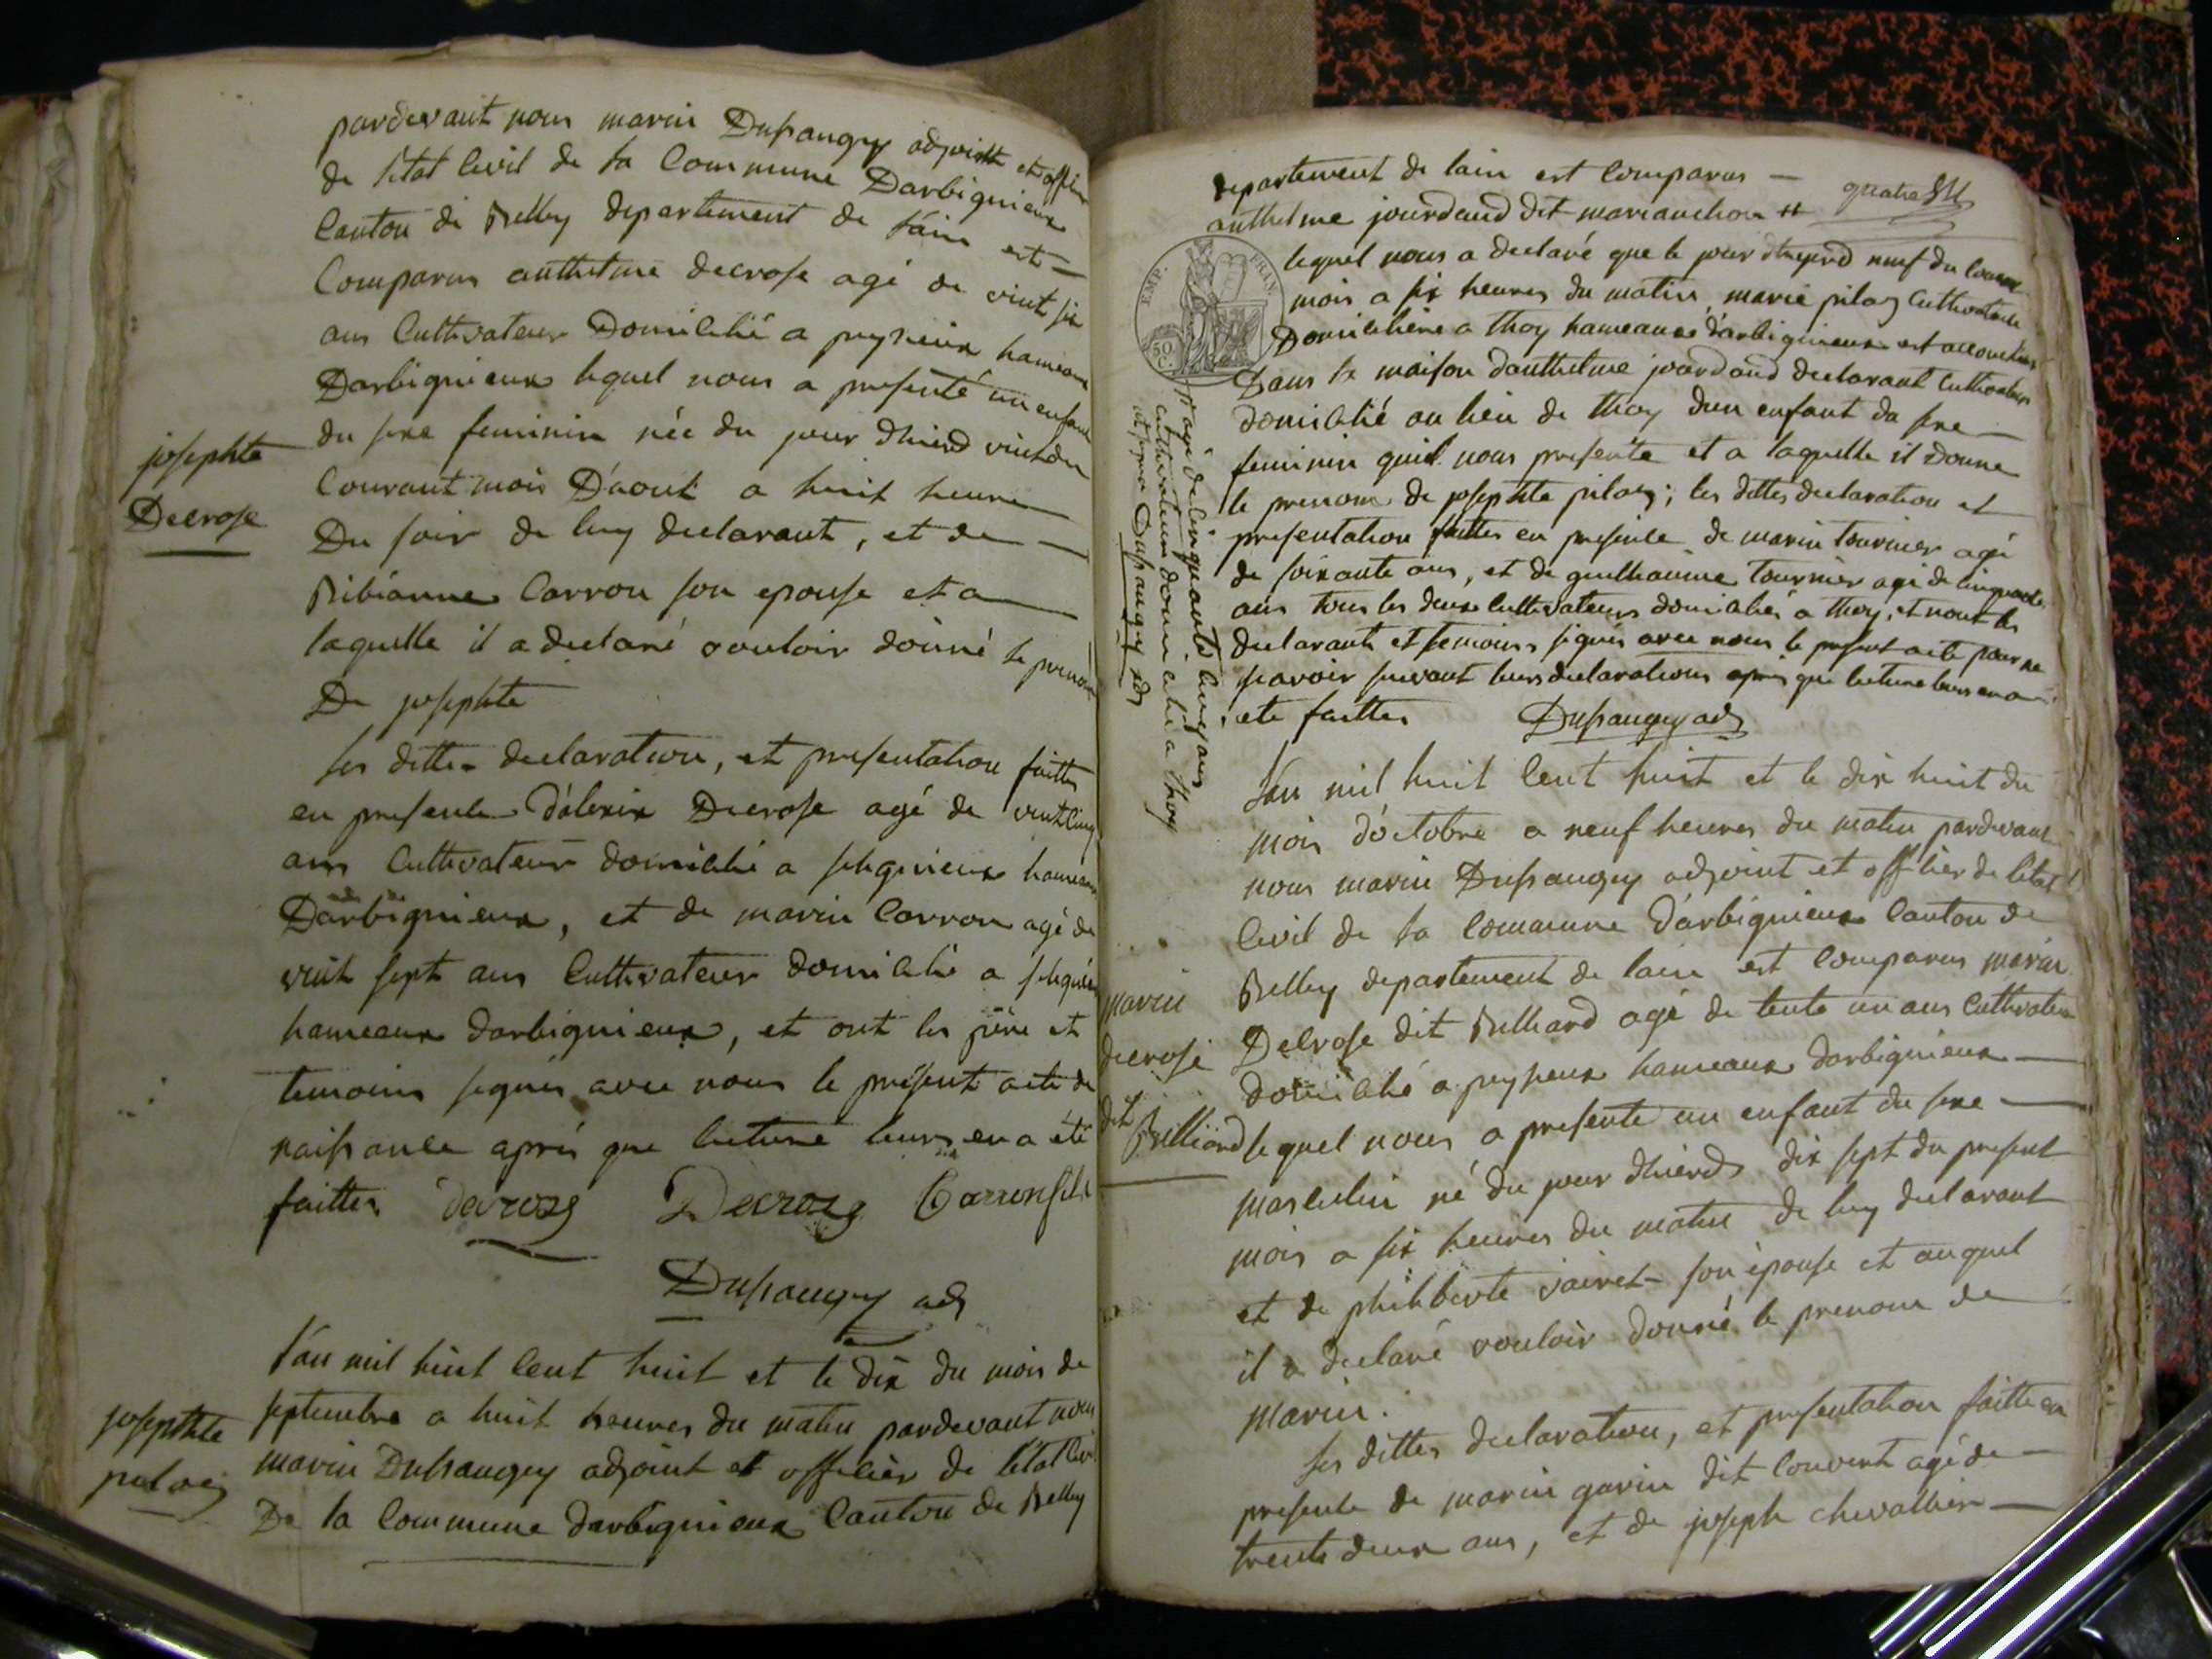 pardevant nous marin Dupraugey adjoint et officier
de letat Civil de la Commune Darbignieux
Canton de Belley departement de l'ain est
Comparus anthelme decrose agé de vint six
ans Cultivateur Domicilié a peyzieux hameaux
Darbignieux lequel nous a presenté un enfant
du sexe feminin née du jour dhierd vint du
Courant mois D'aout a huit heures
Du soir de luy declarant, et de
Bibianne Carron son epouse et a
laquelle il a declaré vouloir donné le prenom
De josephte
josephte
Decrose
les dittes declaration, et presentation faittes
en presente d'alexix Decrose agé de vint cinq
ans Cultivateur domicilié a slignieux hameaux
Darbignieux, et de marin Carron agé de
vint sept ans Cultivateur domicilié a
hameaux darbignieux, et ont les père et
temoins signés avec nous le présent acte de
naissance aprés que lecture leurs en a été
faittes decroze Decroze Carron fils
Dupraugey adj
l'an mil huit cent huit et le dix du mois de
septembre a huit heures du matin pardevant nous
marin Dupraugey adjoint et officier de l'état Civil
De la Commune darbignieux Canton de Belley
josephte
piloz
departement de lain est Comparus
quatre
anthelme jourdand dit marianchon #
lequel nous a declaré que le jour dhyerd neuf du Courant
mois a six heures du matin, marie piloz Cultivatrice
Domiciliée a thoy hameaux d'arbignieux est accouchée
Dans la maison d'anthelme jourdand declarant Cultivateur
domicilié au lieu de thoy dun enfant du sexe
feminin quil nous presente et a laquelle il donne
le prenom de josephte piloz; les dittes declaration et
presentation faittes en presence de marin tournier agé
de soixante ans, et de guilhaume tournier agé de cinquante
ans tous les deux Cultivateurs domiciliés a thoy, et nont les
declarants et temoins signés avec nous le present acte pour ne
scavoir suivant leurs declarations aprés que lecture leurs en a
eté faittes Dupraugey adj
EMP. FRAN.
50 C.
# agé de cinquante cinq ans
cultivateur domicilié a thoy
Dupraugey adj
L'an mil huit Cent huit et le dix huit du
mois d'octobre a neuf heures du matin pardevant
nous marin Dupraugey adjoint et officier de létat
Civil de la Commune d'arbignieux Canton de
Belley departement de lain est Comparus marin
Decrose dit Billiard agé de tente un ans Cultivateur
domicilié a peyzieux hameaux darbignieux
lequel nous a presenté un enfant du sexe
masculin né du jour dhierd dix sept du present
mois a six heures du matin de luy declarant
et de philiberte vairet son épouse et auquel
il a declaré vouloir donné le prenom de
marin.
marin
decrose
dit
Billiard
les dittes declaration, et presentation faitte en
presente de marin gavin dit Convent agé de
trente deux ans, et de joseph chevallier